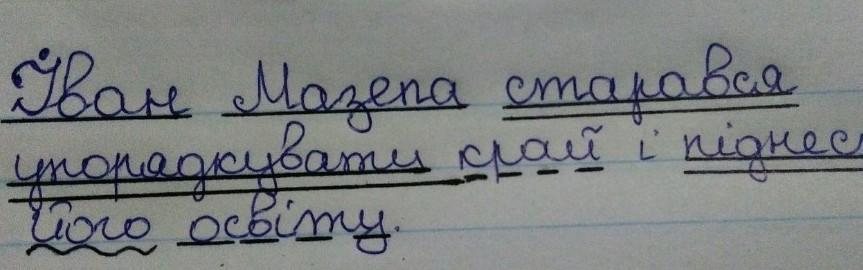 Іван Мазепа старався
упорядкувати край і піднес
його освіту.